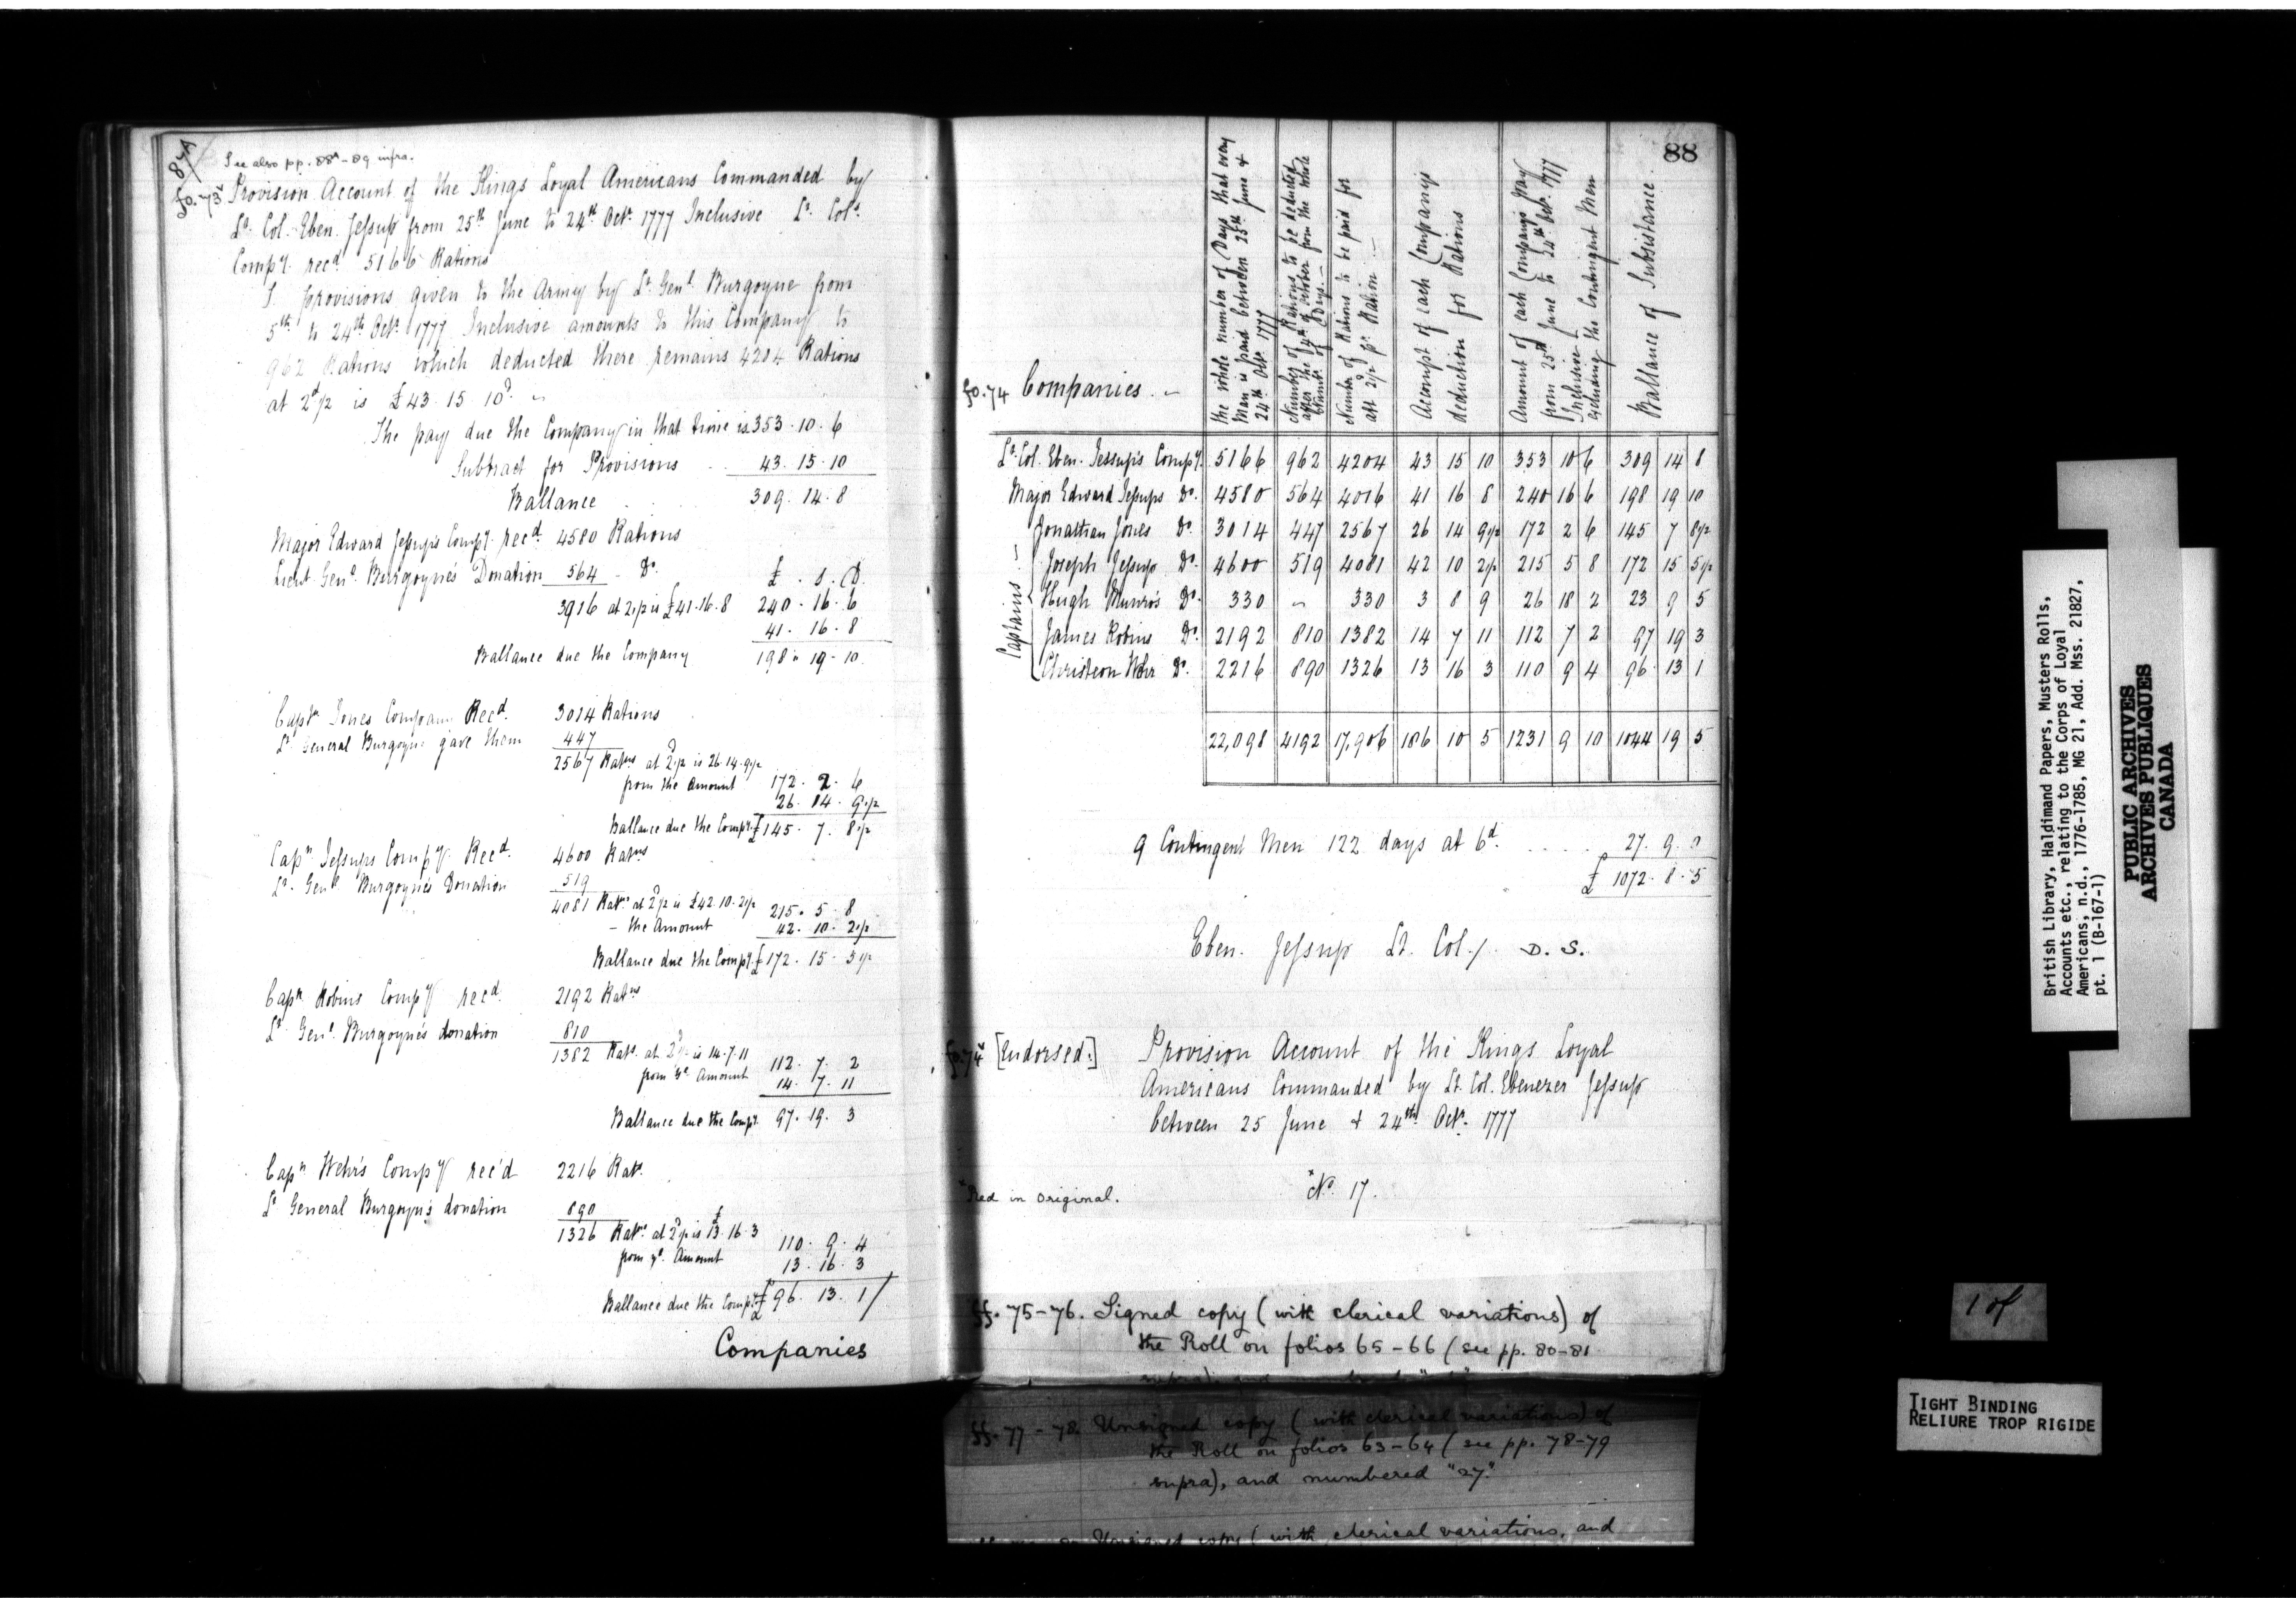 87A
See also pp. 88A - 89 infra.
fo. 73v Provision Account of the Kings Loyal Americans Commanded by
Lt. Col. Eben. Jessup from 25th June to 24th Octr. 1777 Inclusive Lt. Cols.
Compy. recd. 5166 Rations
provisions given to the Army by Lt. Genl. Burgoyne from
5th to 24th Octr. 1777 Inclusive amounts to this Company to
962 Rations which deducted there remains 4204 Rations
at 2d 1/2 is £43. 15. 10d.
The pay due the Company in that time is 353. 10. 6
Subtract for Provisions .. 43. 15. 10
Ballance 309. 14. 8
Major Edward Jessup's Compy. recd. 4580 Rations
Lieut. Genl. Burgoyne's Donation 564 - Do. £ . S . D.
3916 at 2 1/2 is £41.16.8 240. 16. 6
41. 16. 8
Ballance due the Company 198 " 19 - 10.
Captn. Jones Company Recd. 3014 Rations
Lt. General Burgoyne gave them 447
2567 Ratns at 2d 1/2 is 26.14.9 1/2
from the Amount 172. 2. 6
26. 14. 9 1/2
Ballance due the Compy. £145. 7. 8 1/2
Capn. Jessups Compy. Recd. 4600 Ratns
Lt. Genl. Burgoyne's Donation 519
4081 Ratns at 2d 1/2 is £42.10.2 1/2 215. 5. 8
- the Amount 42. 10. 2 1/2
Ballance due the Compy. £172. 15. 5 1/2
Capn. Robins Compy recd. 2192 Ratns
Lt. Genl. Burgoyne's donation 810
1382 Rats. at 2d 1/2 is 14.7.11 112. 7. 2
from ye. Amount 14. 7. 11
Ballance due the Compy. 97. 19. 3
Capn. Wehr's Compy rec'd 2216 Rats.
Lt General Burgoyn's donation 890
1326 Ratns. at 2d 1/2 is £13.16.3 110. 9. 4
from ye. Amount 13. 16. 3
Ballance due the Compy. £96. 13. 1/
Companies
88
fo. 74 Companies. -
the whole number of Days that every
Man is paid between 25th June &
24th Octr. 1777
Number of Rations to be deducted
after the 4th of October from the whole
Numbr. of Days. -
Number of Rations to be paid for
att 2 1/2 pr. Ration -
Accompt of each Companys
deduction for Rations
Amount of each Companys Pay
from 25th June to 24th Octr. 1777
Inclusive
excluding the Contingent Men
Ballance of Subsistance.
Lt. Col. Eben. Jessup's Compy. 5166 962 4204 43 15 10 353 10 6 309 14 8
Major Edward Jessups Do. 4580 564 4016 41 16 8 240 16 6 198 19 10
Captains
Jonathan Jones Do. 3014 447 2567 26 14 9 1/2 172 2 6 145 7 8 1/2
Joseph Jessup Do. 4600 519 4081 42 10 2 1/2 215 5 8 172 15 5 1/2
Hugh Munro's Do. 330 ~ 330 3 8 9 26 18 2 23 9 5
James Robins Do. 2192 810 1382 14 7 11 112 7 2 97 19 3
Christeon Wehr Do. 2216 890 1326 13 16 3 110 9 4 96 13 1
22,098 4192 17,906 186 10 5 1231 9 10 1044 19 5
9 Contingent Men 122 days at 6d. .... 27. 9. 0
£ 1072. 8. 5
Eben. Jessup Lt. Col./. D. S.
fo. 74v [Endorsed:] Provision Account of the Kings Loyal
Americans Commanded by Lt. Col. Ebenezer Jessup
between 25 June & 24th Octr. 1777
x No. 17.
x Red in original.
ff. 75-76. Signed copy (with clerical variations) of
the Roll on folios 65-66 (see pp. 80-81
ff. 77-78. Unsigned copy (with clerical variations) of
the Roll on folios 63-64 (see pp. 78-79
supra), and numbered "27."
Unsigned copy (with clerical variations, and
British Library, Haldimand Papers, Musters Rolls,
Accounts etc., relating to the Corps of Loyal
Americans, n.d., 1776-1785, MG 21, Add. Mss. 21827,
pt. 1 (B-167-1)
PUBLIC ARCHIVES
ARCHIVES PUBLIQUES
CANADA
1 of
TIGHT BINDING
RELIURE TROP RIGIDE